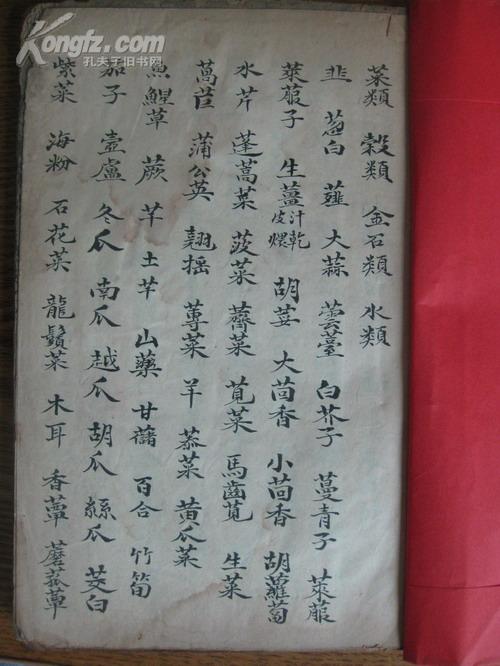 Kongfz.com
孔夫子旧书网
菜類 穀類 金石類 水類
韭 葱白 薤 大蒜 蕓薹 白芥子 蔓青子 萊菔
萊菔子 生薑 皮汁 煨乾 胡荽 大茴香 小茴香 胡蘿蔔
水芹 蓬蒿菜 菠菜 薺菜 莧菜 馬齒莧 生菜
萵苣 蒲公英 翹摇 蓴菜 羊 菾菜 黄瓜菜
魚鯹草 蕨 芋 土芋 山藥 甘藷 百合 竹筍
茄子 壼盧 冬瓜 南瓜 越瓜 胡瓜 絲瓜 茭白
紫菜 海粉 石花菜 龍鬚菜 木耳 香蕈 蘑菰蕈